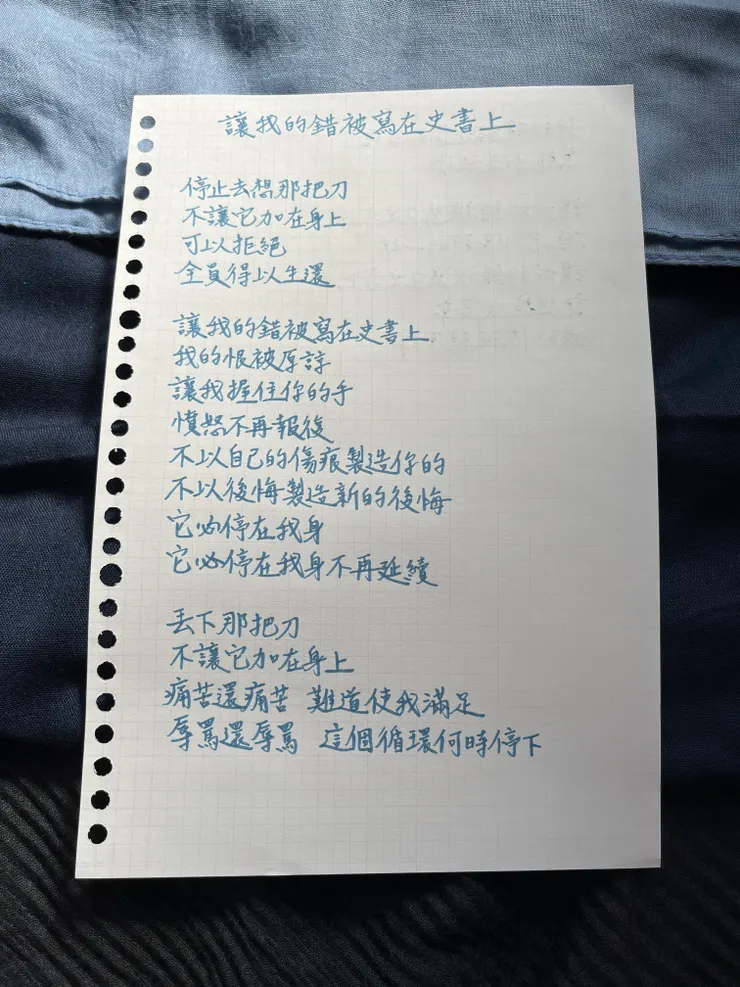 讓我的錯被寫在史書上
停止去想那把刀
不讓它加在身上
可以拒絕
全員得以生還
讓我的錯被寫在史書上
我的恨被原諒
讓我握住你的手
憤怒不再報復
不以自己的傷痕製造你的
不以後悔製造新的後悔
它必停在我身
它必停在我身不再延續
丟下那把刀
不讓它加在身上
痛苦還痛苦 難道使我滿足
辱罵還辱罵 這個循環何時停下